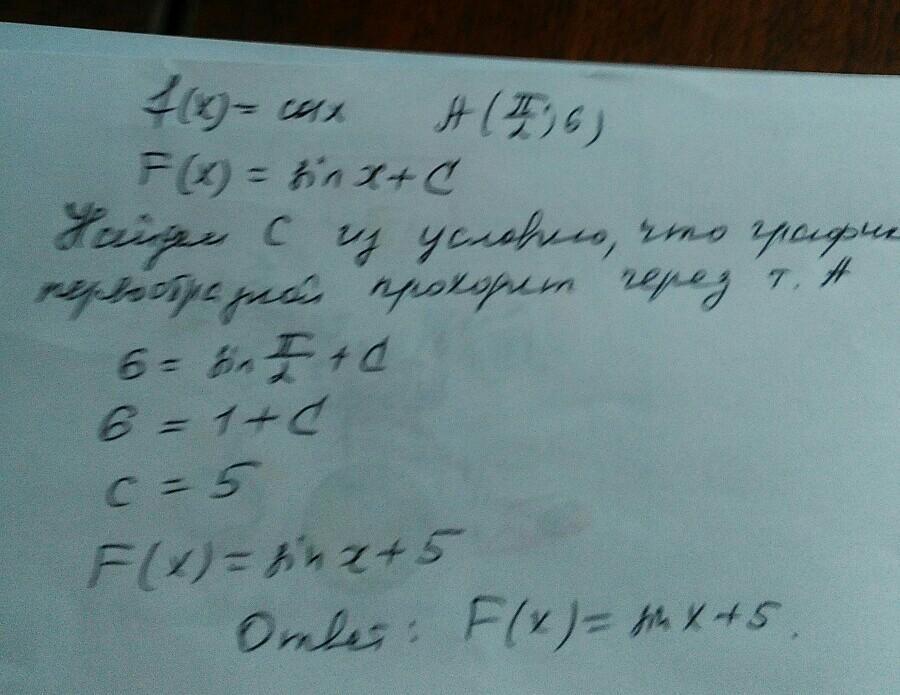 f(x) = cos x A(π/2; 6)
F(x) = sin x + C
Найдем C из условию, что график
первообразной проходит через т. A
6 = sin π/2 + C
6 = 1 + C
C = 5
F(x) = sin x + 5
Ответ: F(x) = sin x + 5.